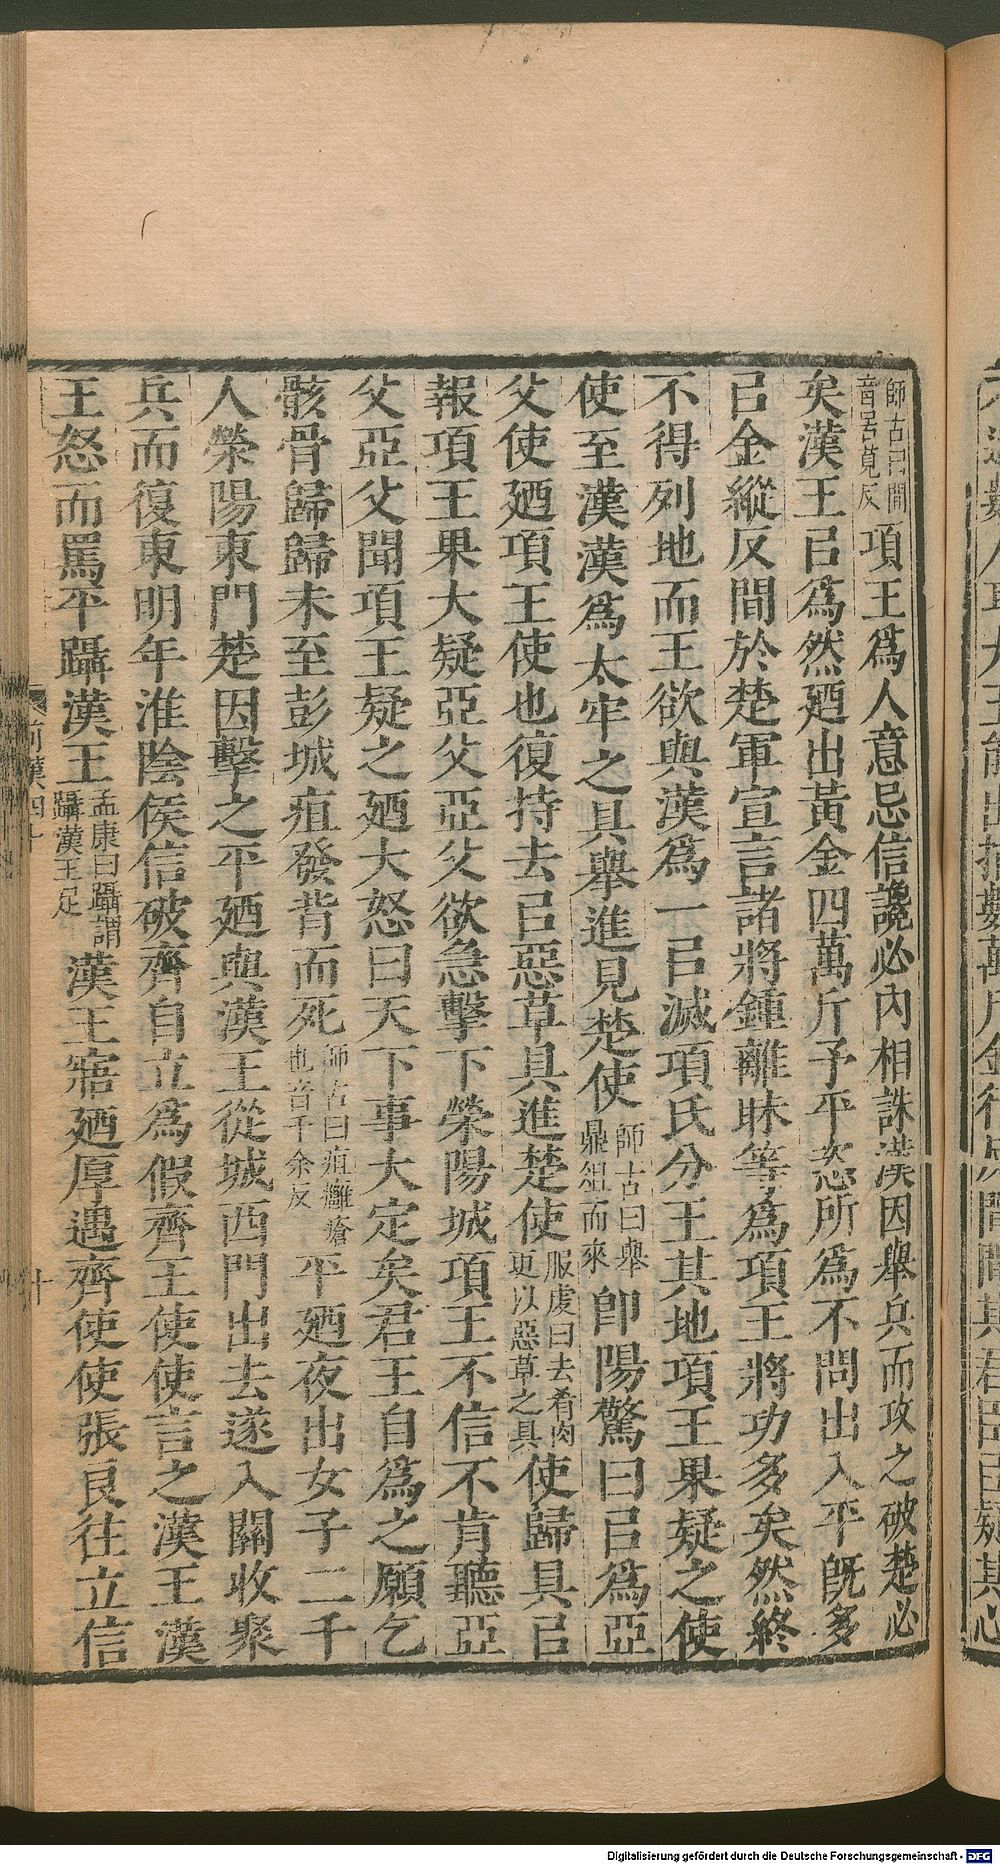 師古曰間音居莧反項王爲人意忌信讒必內相誅漢因舉兵而攻之破楚必
矣漢王㠯爲然廼出黃金四萬斤予平恣所爲不問出入平旣多
㠯金縱反間於楚軍宣言諸將鍾離眛等爲項王將功多矣然終
不得列地而王欲與漢爲一㠯滅項氏分王其地項王果疑之使
使至漢漢爲太牢之具舉進見楚使師古曰舉鼎俎而來卽陽驚曰㠯爲亞
父使廼項王使也復持去㠯惡草具進楚使服虔曰去肴肉更以惡草之具使歸具㠯
報項王果大疑亞父亞父欲急擊下滎陽城項王不信不肯聽亞
父亞父聞項王疑之廼大怒曰天下事大定矣君王自爲之願乞
骸骨歸歸未至彭城疽發背而死師古曰疽癰瘡也音千余反平廼夜出女子二千
人滎陽東門楚因擊之平廼與漢王從城西門出去遂入關收聚
兵而復東明年淮陰侯信破齊自立爲假齊王使使言之漢王漢
王怒而罵平躡漢王孟康曰躡謂躡漢王足漢王寤廼厚遇齊使使張良往立信
前漢四十
十
Digitalisierung gefördert durch die Deutsche Forschungsgemeinschaft - DFG